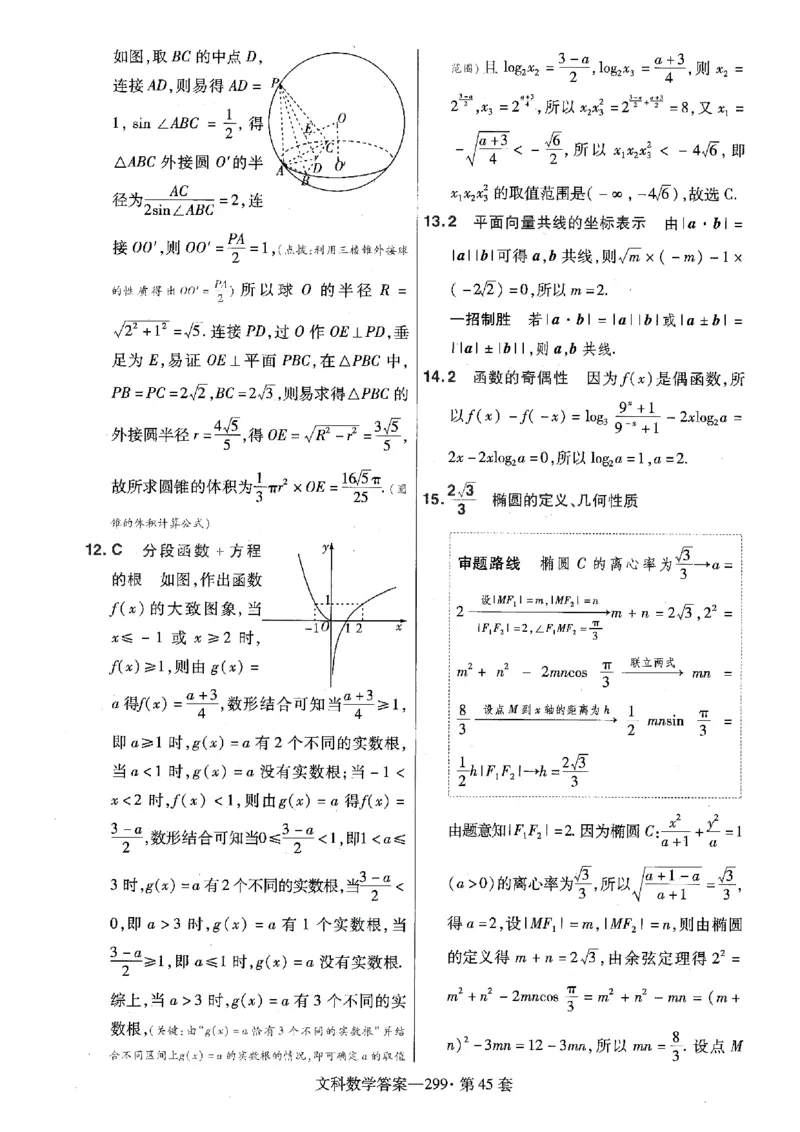 如图,取 BC 的中点 D,
连接 AD,则易得 AD =
1, sin ∠ABC = 1/2, 得
△ABC 外接圆 O′的半
径为 AC/(2sin∠ABC) = 2,连
接 OO′,则 OO′ = PA/2 = 1,(点拨:利用三棱锥外接球
的性质得出 OO′ = PA/2) 所以球 O 的半径 R =
√(2²+1²) = √5. 连接 PD,过 O 作 OE⊥PD,垂
足为 E,易证 OE⊥平面 PBC,在△PBC 中,
PB = PC = 2√2, BC = 2√3,则易求得△PBC 的
外接圆半径 r = 4√5/5,得 OE = √(R²−r²) = 3√5/5,
故所求圆锥的体积为 1/3 πr² × OE = 16√5π/25.(圆
锥的体积计算公式)
P
E
O
C
A
D
O′
B
12. C 分段函数 + 方程
的根 如图,作出函数
f(x) 的大致图象,当
x ≤ −1 或 x ≥ 2 时,
f(x) ≥ 1,则由 g(x) =
y
1
−1 O 1 2 x
a 得f(x) = (a+3)/4,数形结合可知当 (a+3)/4 ≥ 1,
即 a≥1 时,g(x) = a 有 2 个不同的实数根,
当 a<1 时,g(x) = a 没有实数根;当 −1 <
x<2 时,f(x) < 1,则由g(x) = a 得f(x) =
(3−a)/2,数形结合可知当0 ≤ (3−a)/2 < 1,即1 < a ≤
3 时,g(x) = a 有 2 个不同的实数根,当 (3−a)/2 <
0,即 a > 3 时,g(x) = a 有 1 个实数根,当
(3−a)/2 ≥ 1,即 a≤1 时,g(x) = a 没有实数根.
综上,当 a > 3 时,g(x) = a 有 3 个不同的实
数根,(关键:由“g(x) = a 恰有 3 个不同的实数根”并结
合不同区间上g(x) = a 的实数根的情况,即可确定 a 的取值
范围) 且 log₂x₂ = (3−a)/2, log₂x₃ = (a+3)/4,则 x₂ =
2^((3−a)/2), x₃ = 2^((a+3)/4),所以 x₂x₃² = 2^((3−a)/2+(a+3)/2) = 8,又 x₁ =
−√((a+3)/4) < −√6/2,所以 x₁x₂x₃² < −4√6,即
x₁x₂x₃² 的取值范围是(−∞, −4√6),故选 C.
13. 2 平面向量共线的坐标表示 由|a·b| =
|a||b|可得 a,b 共线,则√m × (−m) − 1 ×
(−2√2) = 0,所以 m = 2.
一招制胜 若|a·b| = |a||b|或|a±b| =
||a|±|b||,则 a,b 共线.
14. 2 函数的奇偶性 因为 f(x) 是偶函数,所
以f(x) − f(−x) = log₃ (9ˣ+1)/(9⁻ˣ+1) − 2xlog₂a =
2x − 2xlog₂a = 0,所以 log₂a = 1, a = 2.
15. 2√3/3 椭圆的定义、几何性质
审题路线 椭圆 C 的离心率为 √3/3 → a =
设|MF₁| = m,|MF₂| = n
2 → m + n = 2√3, 2² =
|F₁F₂| = 2,∠F₁MF₂ = π/3
m² + n² − 2mncos π/3 联立两式→ mn =
8/3 设点 M 到 x 轴的距离为 h → 1/2 mnsin π/3 =
1/2 h|F₁F₂| → h = 2√3/3
由题意知|F₁F₂| = 2. 因为椭圆 C: x²/(a+1) + y²/a = 1
(a>0)的离心率为 √3/3,所以 √((a+1−a)/(a+1)) = √3/3,
得 a = 2,设|MF₁| = m,|MF₂| = n,则由椭圆
的定义得 m + n = 2√3,由余弦定理得 2² =
m² + n² − 2mncos π/3 = m² + n² − mn = (m +
n)² − 3mn = 12 − 3mn,所以 mn = 8/3. 设点 M
文科数学答案—299·第 45 套